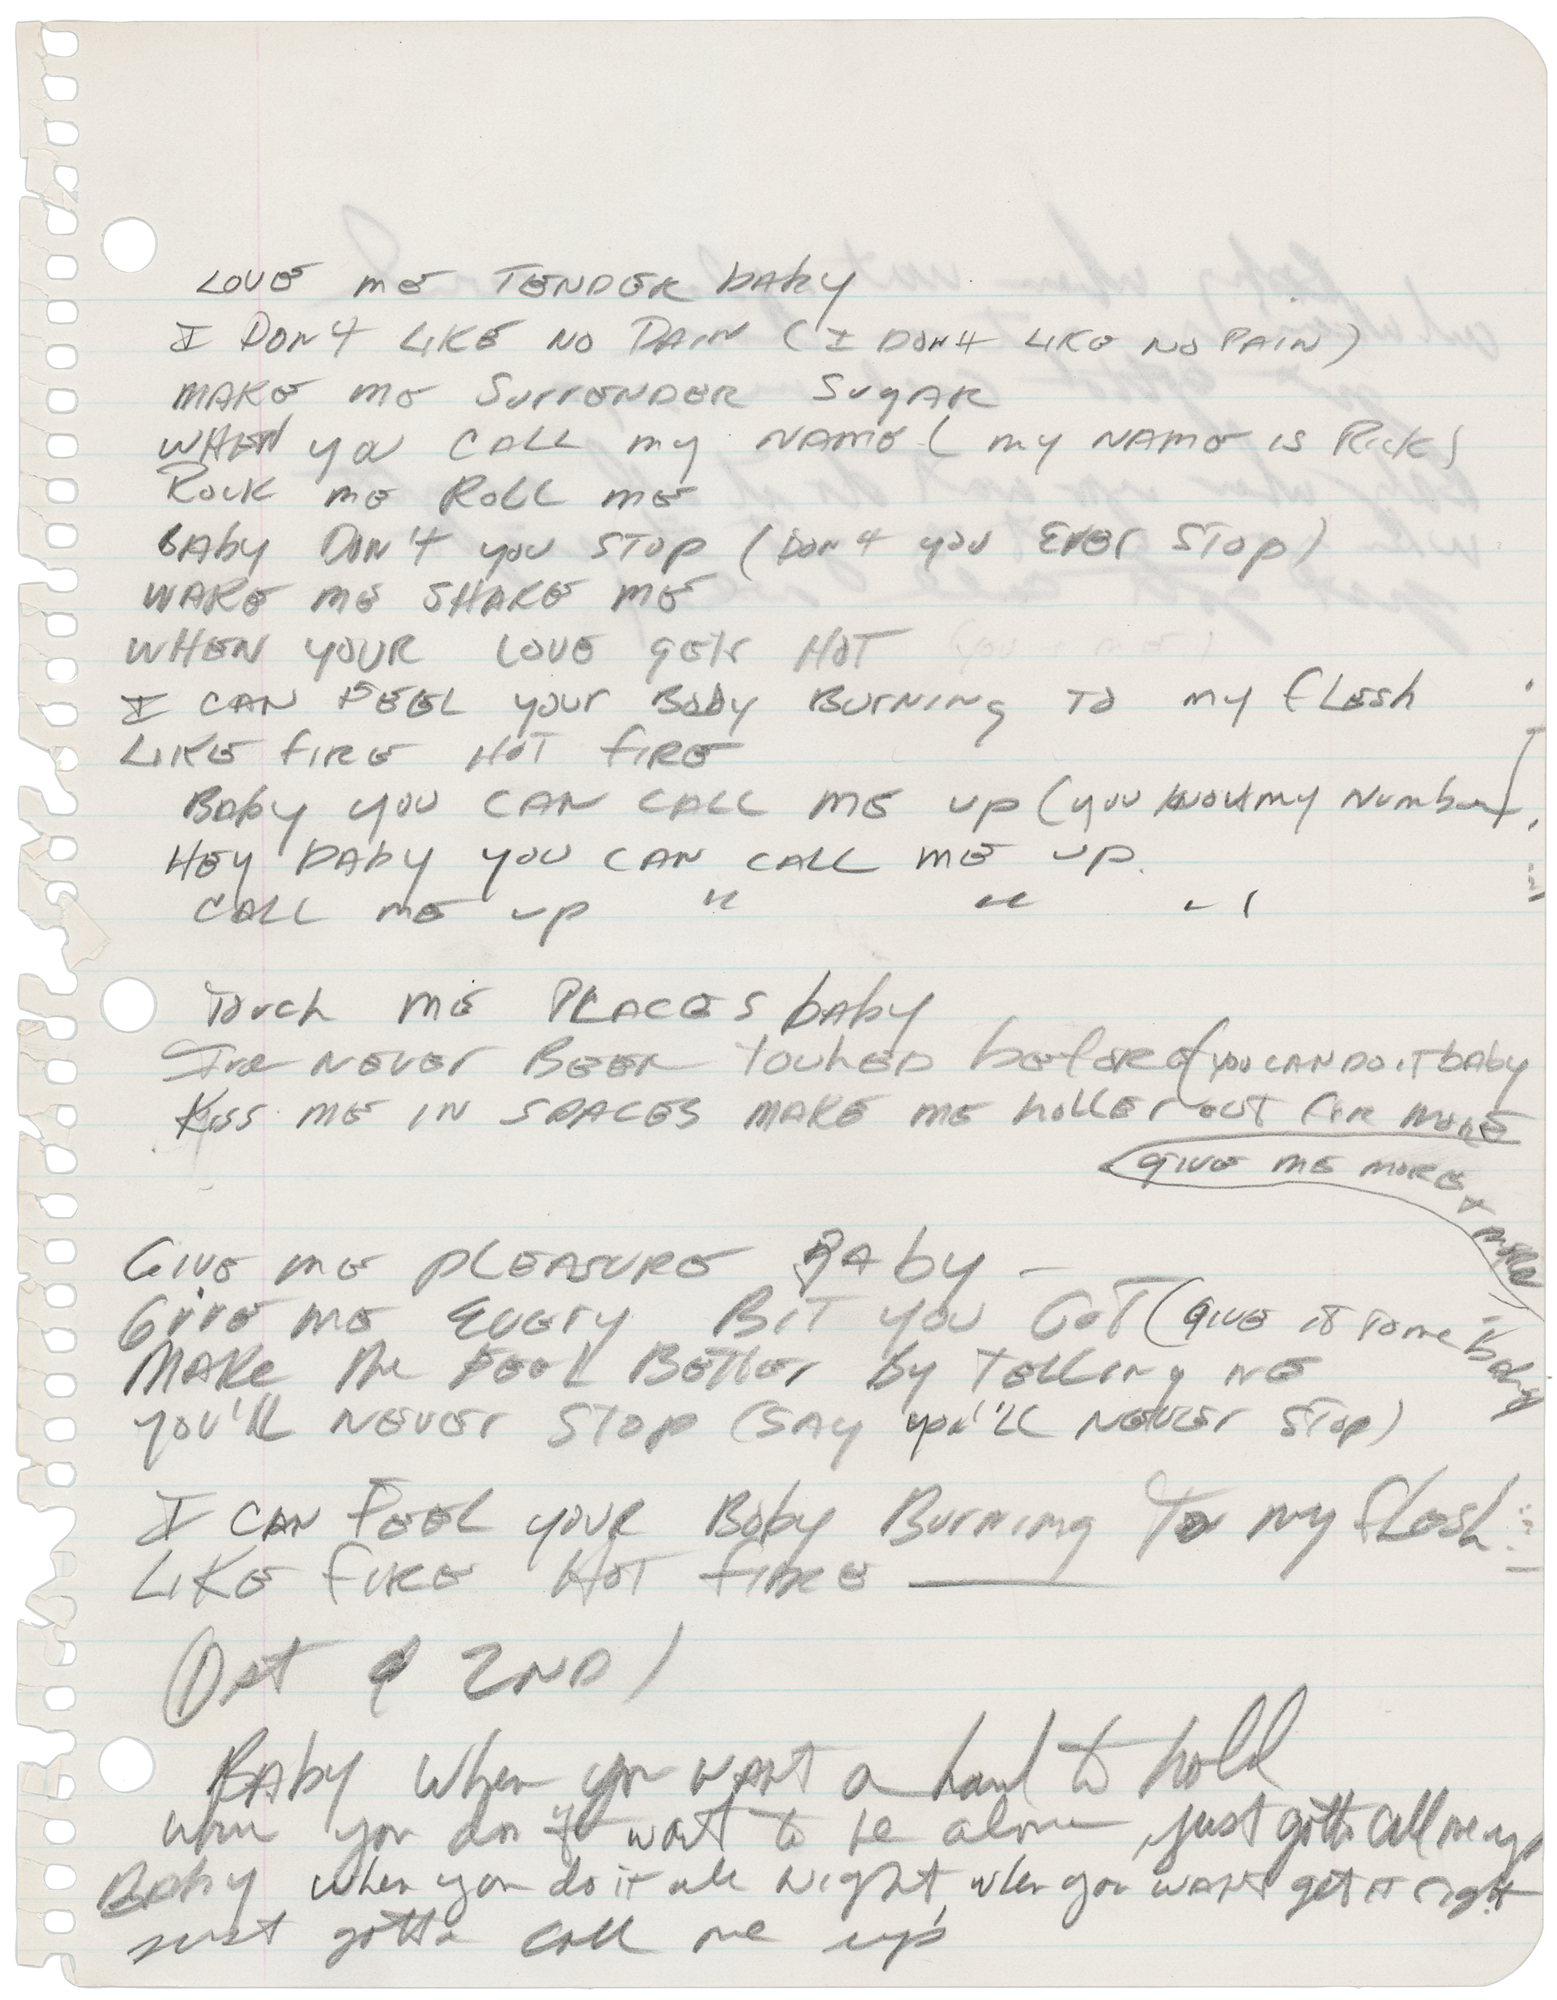 LOVE ME TENDER bAby
I DON'T LIKE NO PAIN (I DON'T LIKE NO PAIN)
MAKE ME SurrENDER SugAR
WHEN you CALL my NAME (my NAME is Rick)
Rock me Roll me
bAby DON'T you STOP (DON'T you EVEr STOP)
WAKE ME SHAKE ME
WHEN YOUR LOVE gets HOT (you & me)
I CAN FEEL your Body BurNiNg TO my flesh
LIKE fIRE HOT fIRE
Baby you CAN CALL ME up (you know my Number)
HEY bAby you CAN CALL ME up.
CALL ME up " " "
Touch ME PLACES bAby
I've NEVEr BEEN TouhED beforE (you CAN DO iT bAby
Kiss ME IN SPACES MAKE ME holler out for MORE
giVE ME MORE & MORE
GIVE ME pLEASURE BAby —
Give ME EVEry BIT you GOT (giVE it to me baby
MAKE Me FEEL BETTEr by TELLing ME
you'll NEVEr STOP (SAY you'll NEVEr STOP)
I CAN FEEL your Body BurNiNg To my flesh
LIKE fIRE HOT fIRE ——
1st & 2ND)
BAby When you WANT a hand to hold
When you don't want to be alone, just gotta call me up
BAby when you do it all Night, when you WANT get it right
just gotta call me up